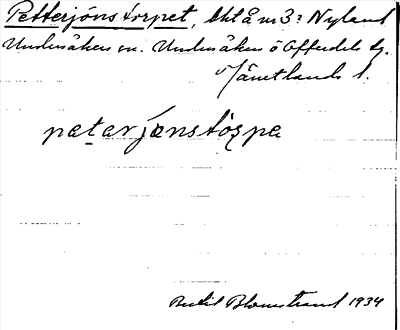 Petterjönstorpet, Utl å nr 3: Nyland
Undersåkers sn. Undersåkers o Offerdals tg.
Jämtlands l.
petarjönstörpe
Bertil Blomstrand 1934